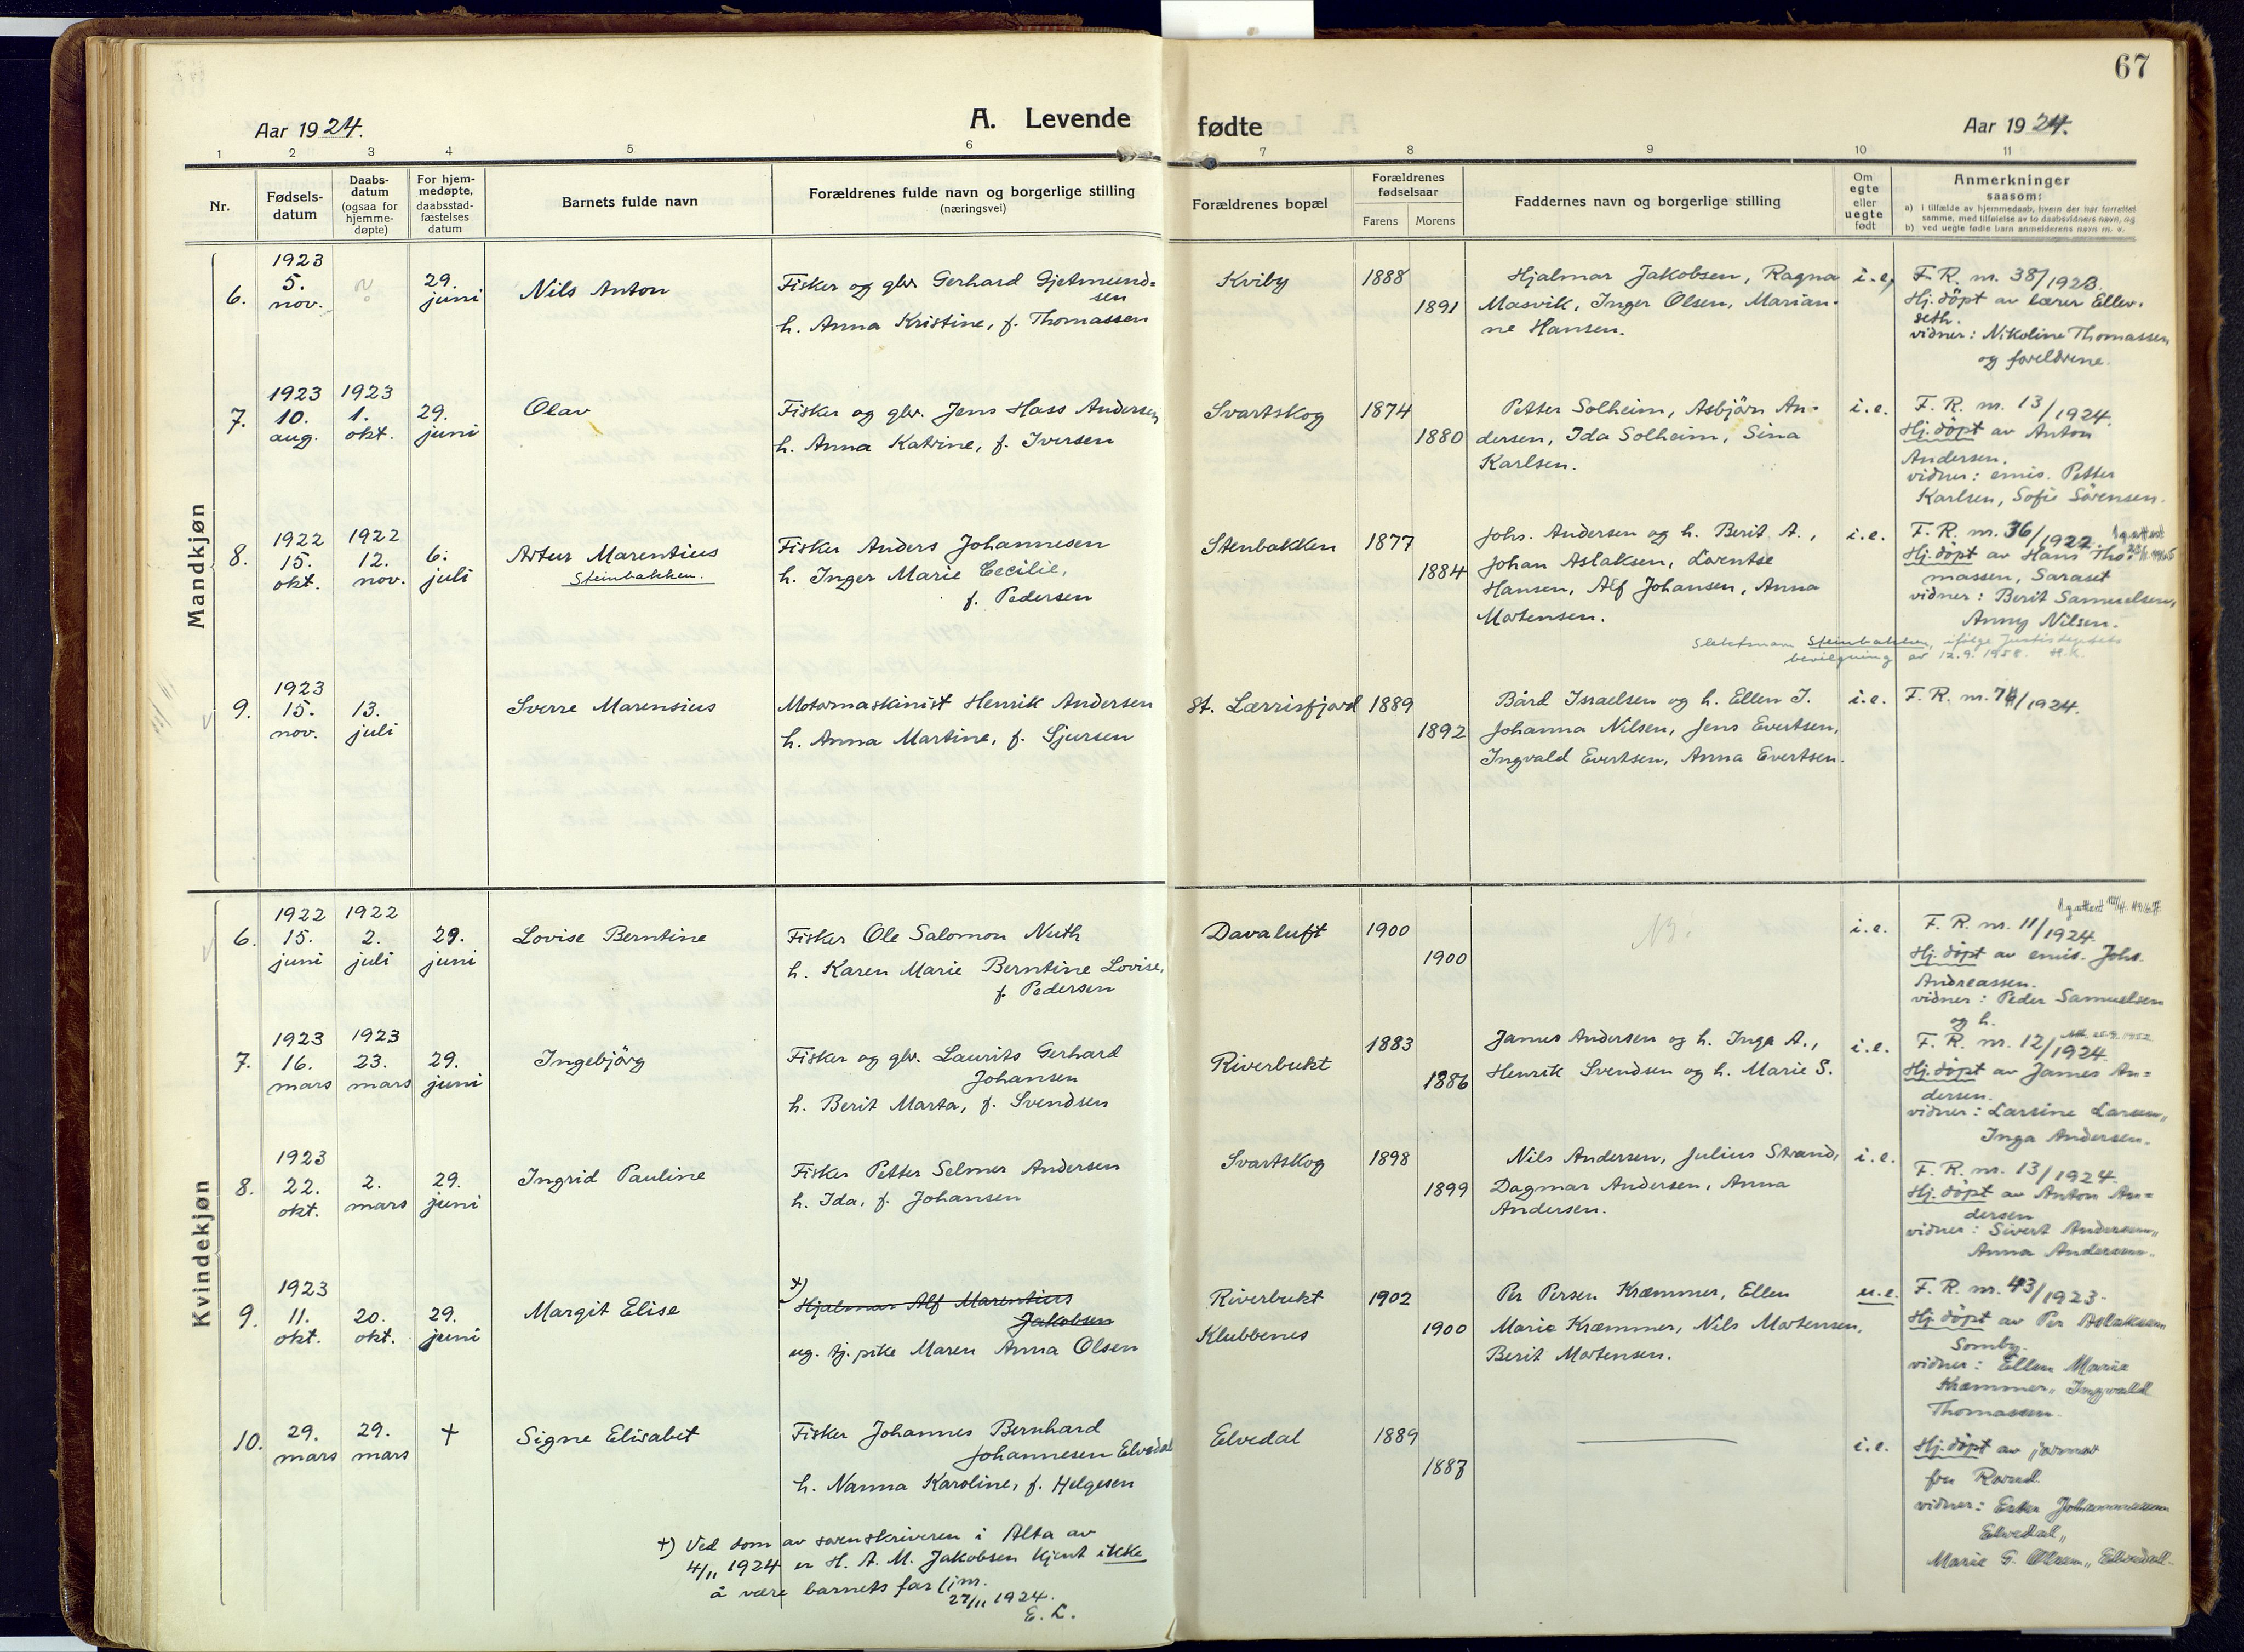 67
Aar 1924.
A. Levende
fødte
Aar 1924.
1 2 3 4 5 6 7 8 9 10 11
Nr.
Fødsels-
datum
Daabs-
datum
(ogsaa for
hjemme-
døpte)
For hjem-
medøpte,
daabsstad-
fæstelses
datum
Barnets fulde navn
Forældrenes fulde navn og borgerlige stilling
(næringsvei)
Forældrenes bopæl
Forældrenes
fødselsaar
Farens Morens
Faddernes navn og borgerlige stilling
Om
egte
eller
uegte
født
Anmerkninger
saasom:
a) i tilfælde av hjemmedaab, hvem der har forrettet
samme, med tilføielse av to daabsvidners navn, og
b) ved uegte fødte barn anmelderens navn m. v.
Mandkjøn
6.
1923
5.
nov.
?
29.
juni
Nils Anton
Fisker og gbr. Gerhard Gjetmund=
sen
h. Anna Kristine, f. Thomassen
Kviby
1888
1891
Hjalmar Jakobsen, Ragna
Masvik, Inger Olsen, Marian-
ne Hansen.
i.e.
F. R. nr. 38/1923.
Hj. döpt av lærer Ellev-
seth.
vidner: Nikoline Thomassen
og foreldrene.
7.
1923
10.
aug.
1923
1.
okt.
29.
juni
Olav
Fisker og gbr. Jens Hass Andersen
h. Anna Katrine, f. Iversen
Svartskog
1874
1880
Petter Solheim, Asbjörn An-
dersen, Ida Solheim, Sina
Karlsen.
i.e.
F. R. nr. 13/1924.
Hj. döpt av Anton
Andersen.
vidner: emis. Petter
Karlsen, Sofie Sörensen.
8.
1922
15.
okt.
1922
12.
nov.
6.
juli
Artur Marentius
Steinbakken.
Fisker Anders Johannesen
h. Inger Marie Cecilie,
f. Pedersen
Stenbakken
1877
1884
Johs. Andersen og h. Berit A.,
Johan Aslaksen, Lorentse
Hansen, Alf Johansen, Anna
Mortensen.
i.e.
F. R. nr. 36/1922.
Hj. döpt av Hans Tho-
massen, Saraset
vidner: Berit Samuelsen,
Anny Nilsen.
Slektsnavn Steinbakken, ifölge Justisdeptets
bevilgning av 12.9.1958. H.K.
9.
1923
15.
nov.
13.
juli
Sverre Marensius
Motormaskinist Henrik Andersen
h. Anna Martine, f. Sjursen
St. Lærrisfjord
1889
1892
Bård Israelsen og h. Ellen I.
Johanna Nilsen, Jens Evertsen,
Ingvald Evertsen, Anna Evertsen.
i.e.
F. R. nr. /1924.
Kvindekjøn
6.
1922
15.
juni
1922
2.
juli
29.
juni
Lovise Berntine
Fisker Ole Salomon Nuth
h. Karen Marie Berntine Lovise,
f. Pedersen
Davaluft
1900
1900
i.e.
F. R. nr. 11/1924.
Hj. döpt av emis. Johs.
Andreassen.
vidner: Peder Samuelsen
og h.
7.
1923
16.
mars
1923
23.
mars
29.
juni
Ingebjörg
Fisker og gbr. Laurits Gerhard
Johansen
h. Berit Marta, f. Svendsen
Riverbukt
1883
1886
James Andersen og h. Inga A.,
Henrik Svendsen og h. Marie S.
i.e.
F. R. nr. 12/1924.
Hj. döpt av James An=
dersen.
vidner: Larsine Larsen,,
Inga Andersen.
8.
1923
22.
okt.
2.
mars
29.
juni
Ingrid Pauline
Fisker Petter Selmer Andersen
h. Ida, f. Johansen
Svartskog
1898
1899
Nils Andersen, Julius Strand,
Dagmar Andersen, Anna
Andersen.
i.e.
F. R. nr. 13/1924.
Hj. döpt av Anton An=
dersen
vidner: Sivert Andersen,,
Anna Andersen.
9.
1923
11.
okt.
20.
okt.
29.
juni
Margit Elise
+)
Hjalmar Alf Marentius
Jakobsen
ug. tj. pike Maren Anna Olsen
Riverbukt
Klubbenes
1902
1900
Per Persen Kræmmer, Ellen
Marie Kræmmer, Nils Mortensen,
Berit Mortensen.
u.e.
F. R. nr. 43/1923.
Hj. döpt av Per Aslaksen
Somby.
vidner: Ellen Marie
Kræmmer, Ingvald
Thomassen.
10.
29.
mars
29.
mars
+
Signe Elisabet
Fisker Johannes Bernhard
Johannesen Elvedal
h. Nanna Karoline, f. Helgesen
Elvedal
1889
1887
i.e.
Hj. döpt av jormor
fru Ravnd.
vidner: Ester Johannessen
Elvedal,,
Marie G. Olsen,, Elvedal.
+) Ved dom av sorenskriveren i Alta av
4/11 1924 er H. A. M. Jakobsen kjent ikke
å være barnets far
27/11 1924.
E. L.